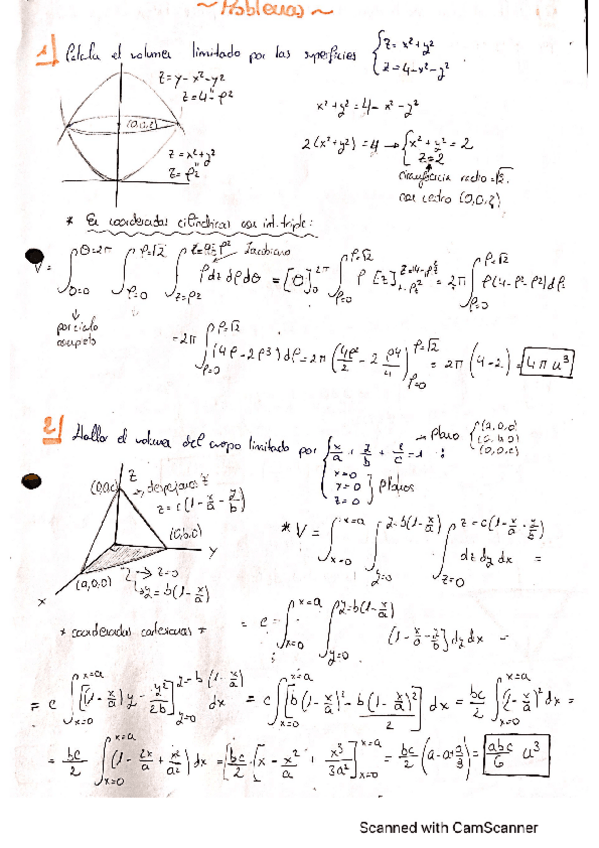 ~Problemas~
1) Calcula el volumen limitado por las superficies { z = x²+y²
z = 4-x²-y²
z = y - x² - y²
z = 4 - ρ²
(0,0,2)
x²+y² = 4 - x² - y²
2(x²+y²) = 4 → { x²+y² = 2
z = 2
z = x²+y²
z = ρ²
circunferencia radio = √2.
con centro (0,0,2)
* En coordenadas cilíndricas con int. triple:
Jacobiano
V = ∫θ=0 θ=2π ∫ρ=0 ρ=√2 ∫z=ρ² z=4-ρ² ρ dz dρ dθ = [θ]0 2π ∫ρ=0 ρ=√2 ρ [z] z=4-ρ² z=ρ² = 2π ∫ρ=0 ρ=√2 ρ(4-ρ²-ρ²) dρ
= 2π ∫ρ=0 ρ=√2 (4ρ - 2ρ³) dρ = 2π (4ρ²/2 - 2 ρ4/4) ρ=√2 ρ=0 = 2π (4-2) = 4π u³
2) Hallar el volumen del cuerpo limitado por { x/a + y/b + z/c = 1 ; → plano { (a,0,0)
(0,b,0)
(0,0,c)
x=0
y=0
z=0 } planos
z
(0,0,c)
z = c(1 - x/a - y/b)
(0,b,0)
y
(a,0,0)
→ z=0
y = b(1 - x/a)
x
* V = ∫x=0 x=a ∫y=0 y=b(1-x/a) ∫z=0 z=c(1-x/a-y/b) dz dy dx =
* coordenadas cartesianas *
= c ∫x=0 x=a ∫y=0 y=b(1-x/a) (1 - x/a - y/b) dy dx =
= c ∫x=0 x=a [(1 - x/a) y - y²/2b] y=0 y=b(1-x/a) dx = c ∫x=0 x=a [b(1 - x/a)² - b(1 - x/a)²/2] dx = bc/2 ∫x=0 x=a (1 - x/a)² dx =
= bc/2 ∫x=0 x=a (1 - 2x/a + x²/a²) dx = bc/2 [x - x²/a + x³/3a²] x=a x=0 = bc/2 (a - a + a/3) = abc/6 u³
Scanned with CamScanner